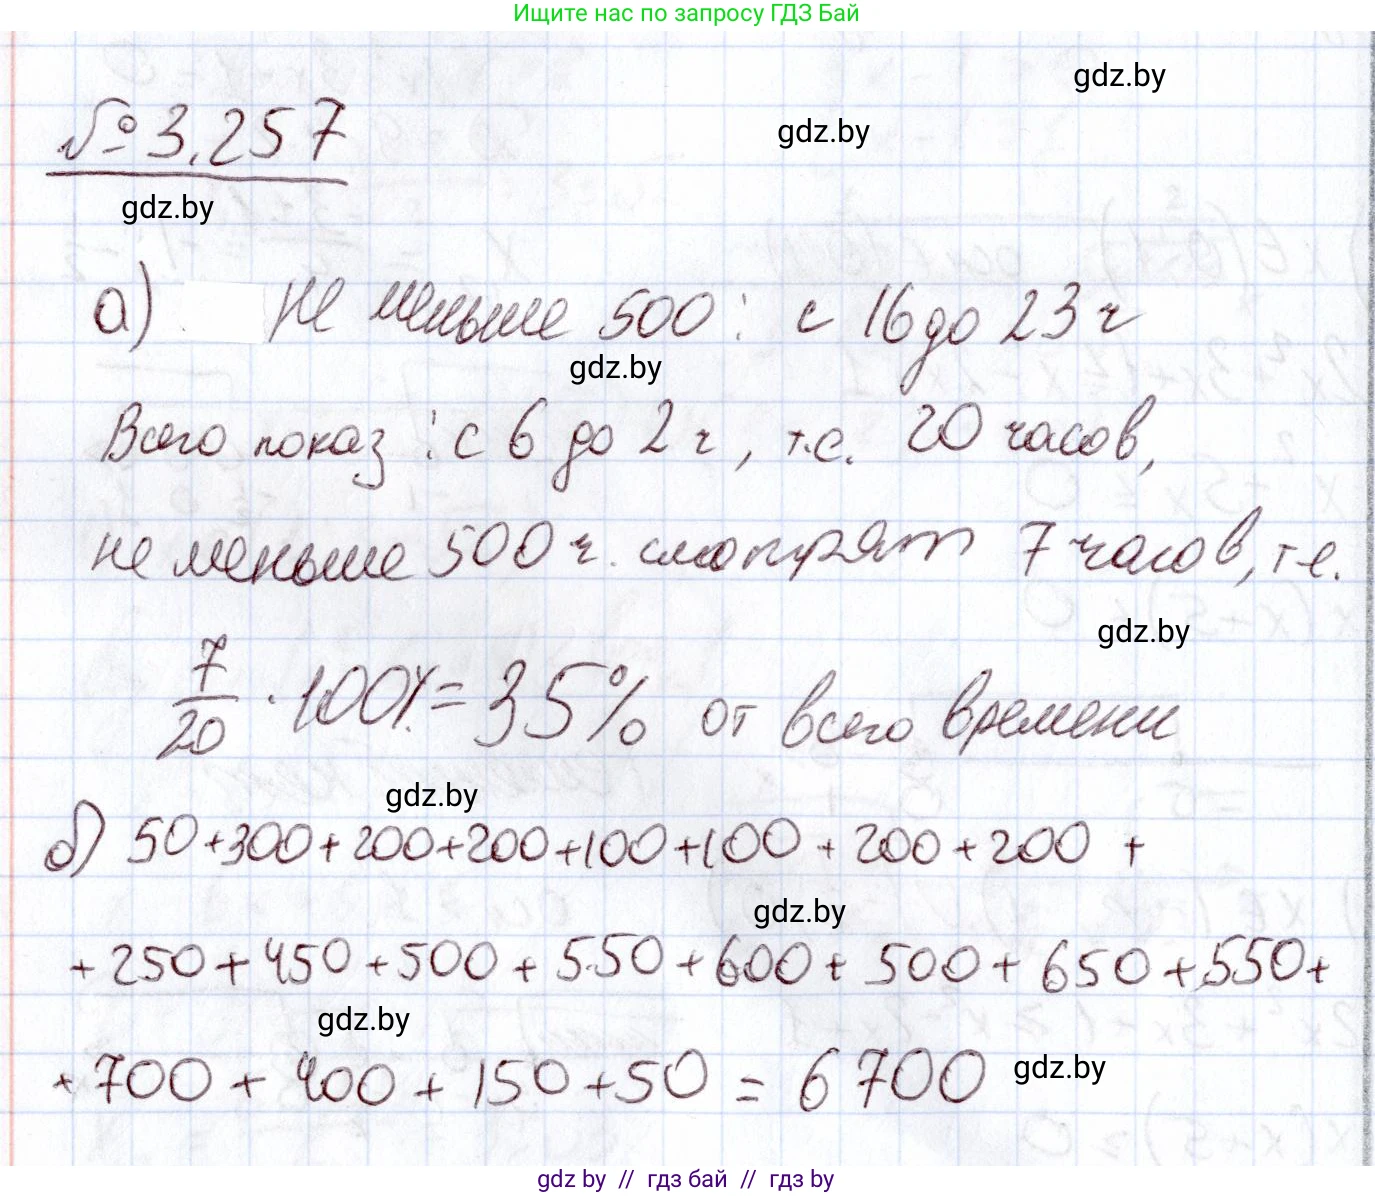 Ищите нас по запросу ГДЗ Бай
gdz.by
gdz.by
№ 3.257
gdz.by
а) Не меньше 500 : с 16 до 23 ч
gdz.by
Всего показ : с 6 до 2 ч, т.е. 20 часов,
не меньше 500 ч. смотрят 7 часов, т.е.
gdz.by
7/20 · 100% = 35% от всего времени
gdz.by
б) 50+300+200+200+100+100+200+200 +
gdz.by
+250+450+500+550+600+500+650+550+
gdz.by
+700+400+150+50 = 6700
gdz.by
gdz by // гдз бай // гдз by